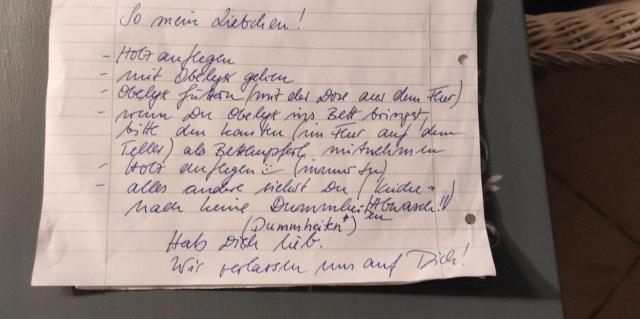 So mein Liebchen!
- Holz auflegen
- mit Obelyx gehen
- Obelyx füttern (mit der Dose aus dem Flur)
- wenn Du Obelyx ins Bett bringst,
bitte den Knochen (im Flur auf dem
Teller) als Betthupferl mitnehmen
- Holz auflegen (immer zu)
- alles andere siehst Du (Küche →)
mach keine Dummhei Abwasch!!
(Dummheiten*) en
Hab Dich lieb.
Wir verlassen uns auf Dich!